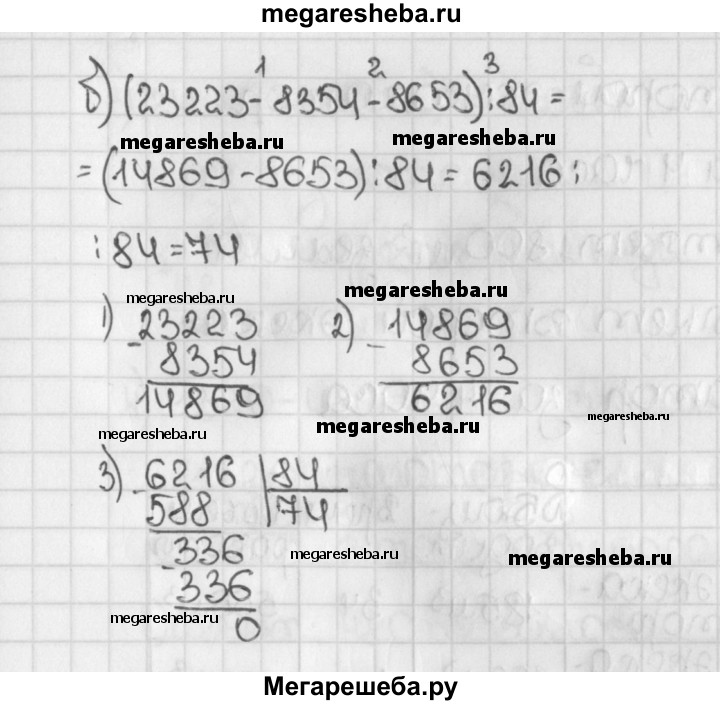 megaresheba.ru
1 2 3
б) (23223-8354-8653):84=
megaresheba.ru megaresheba.ru
=(14869-8653):84=6216:
:84=74
megaresheba.ru megaresheba.ru
1) -23223 2) -14869
8354 8653
14869 6216
megaresheba.ru megaresheba.ru megaresheba.ru
3) -6216 |84
588 |74
-336
megaresheba.ru megaresheba.ru
336
megaresheba.ru
0
Мегарешеба.ру